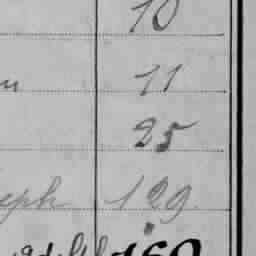 10
11
25
eph 129
160